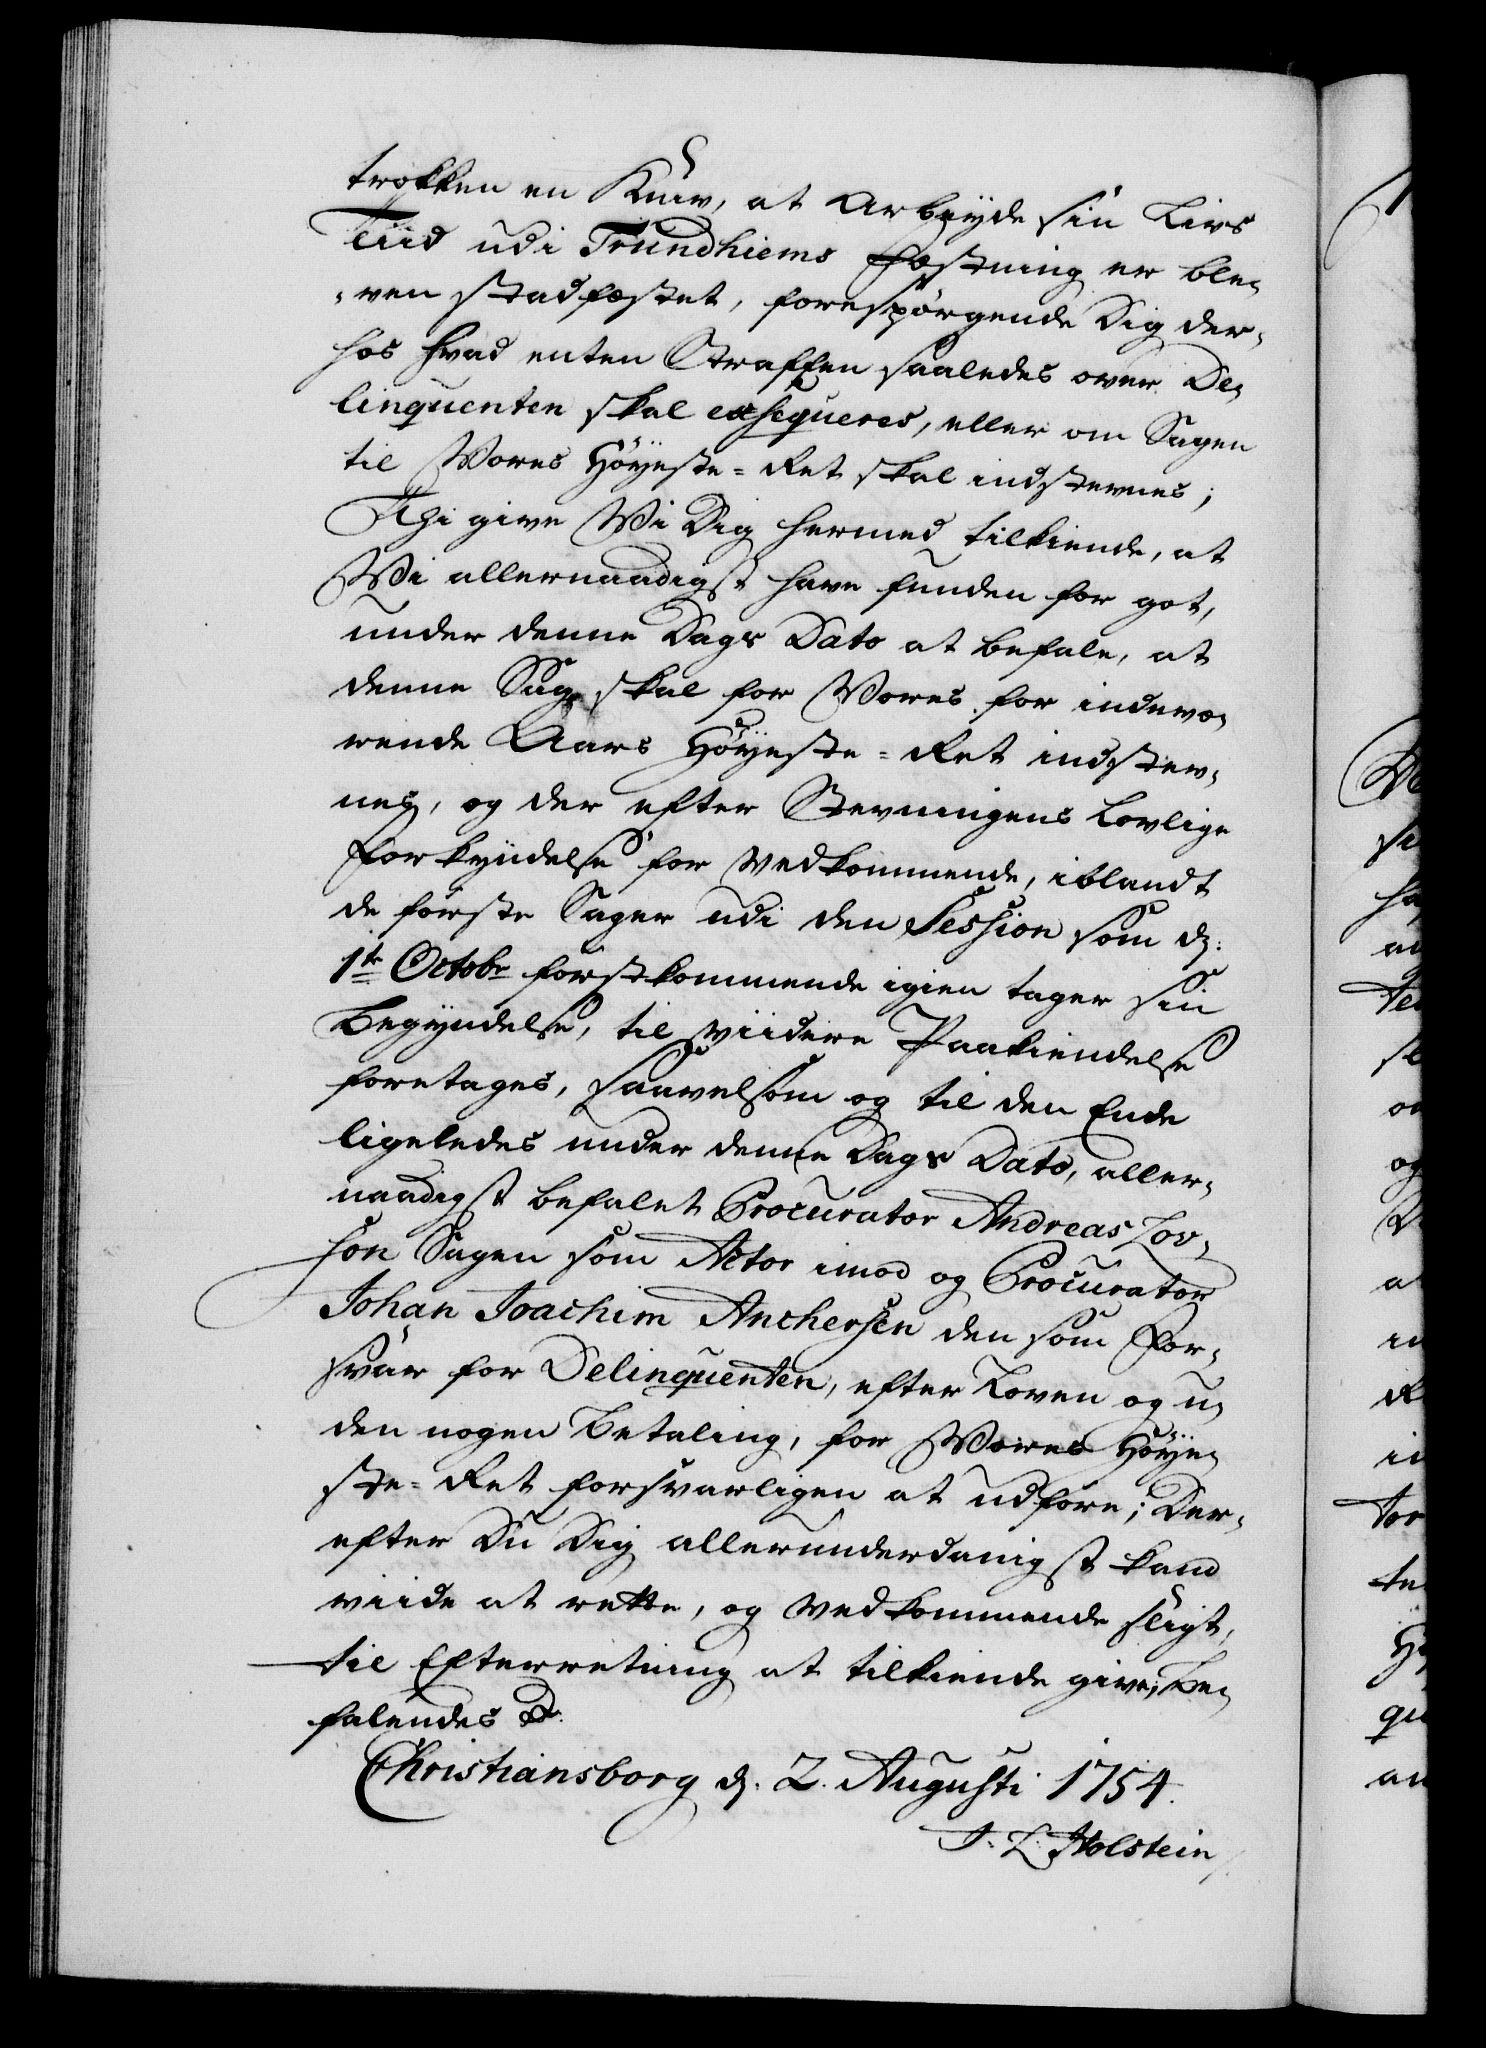 trokken en Kniv, at Arbeyde sin Livs
Tiid udi Trundhiems Fæstning er ble¬
-ven stadfæstet, forespörgende Dig der¬
hos hvad enten Straffen saaledes over De¬
linquenten skal exsequeres, eller om Sagen
til Vores Höyeste-Ret skal indstevnes;
Thi give Vi Dig hermed tilkiende, at
Vi allernaadigst have funden for got,
under denne Dags Dato at befale, at
denne Sag skal for Vores for indevæ¬
rende Aars Höyeste-Ret indstev¬
nes, og der efter Stevningens Lovlige
Forkyndelse for Vedkommende, iblandt
de förste Sager udi den Session som d:
1te Octobr förstkommende igien tager sin
Begyndelse, til viidere Paakiendelse
foretages, saavelsom og til den Ende
ligeledes under denne Dags Dato, aller¬
naadigst befalet Procurator Andreas Lov¬
son Sagen som Actor imod og Procurator
Johan Joachim Anchersen den som For¬
svar for Delinquenten, efter Loven og u¬
den nogen Betaling, for Vores Höye¬
ste-Ret forsvarligen at udföre; Der¬
efter Du Dig allerunderdanigst kand
viide at rette, og Vedkommende sligt,
til Efterretning at tilkiende give; Be¬
falendes
Christiansborg d. 2. Augusti 1754.
J. L. Holstein